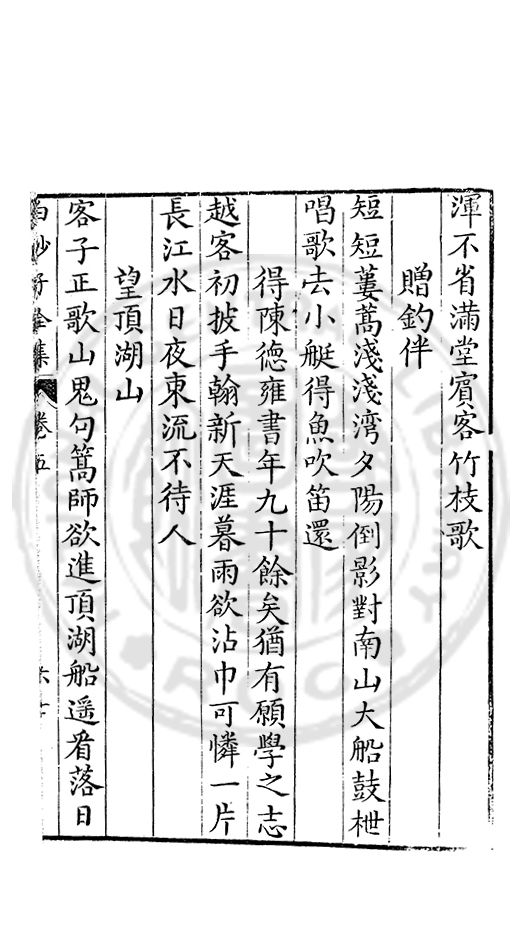 渾不省滿堂賓客竹枝歌
贈釣伴
短短蔞蒿淺淺灣夕陽倒影對南山大船鼓枻
唱歌去小艇得魚吹笛還
得陳德雍書年九十餘矣猶有願學之志
越客初披手翰新天涯暮雨欲沾巾可憐一片
長江水日夜東流不待人
望頂湖山
客子正歌山鬼句篙師欲進頂湖船遥看落日
白沙子全集 卷五